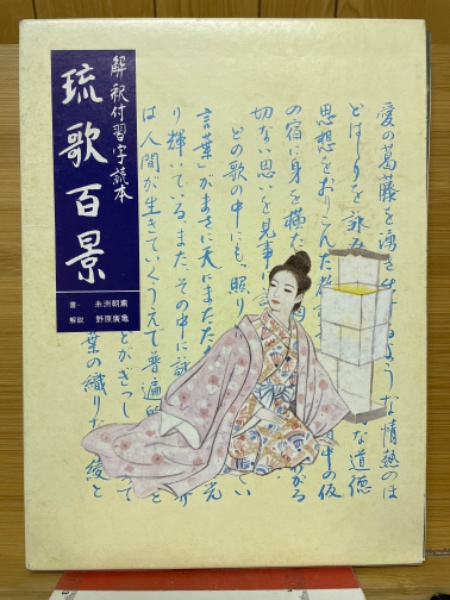 解釈付習字読本
琉歌百景
書・ 糸洲朝薫
解説 野原廣亀
愛の葛藤を湧き ような情熱のほ
とばしりを詠み な道徳
思想をおりこんだ 中の仮
の宿に身を横た がる
切ない思いを見事に い
どの歌の中にも、照り
言葉」がまさに天にまたた 光
り輝いている。また、その中に詠
は人間が生きていくうえで普遍的 と
とがぎっし って
葉の織りな 綾と